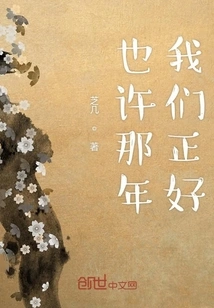 也许那年
我们正好
芝几 著
创世中文网